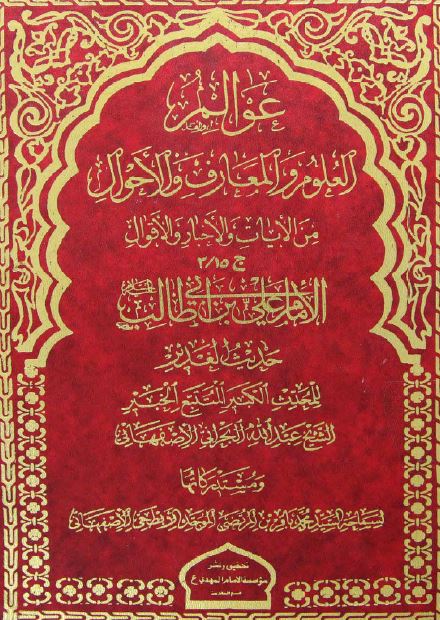 عوالم
العلوم والمعارف والأحوال
من الآيات والأخبار والأقوال
ج ٣/١٥
الإمام علي بن أبي طالب
حديث الغدير
للمحدث الكبير المتتبع الخبير
الشيخ عبد الله البحراني الإصفهاني
ومستدركاتها
لسماحة السيد محمد باقر بن المرتضى الموحد الأبطحي الإصفهاني
تحقيق ونشر
مؤسسة الإمام المهدي ع